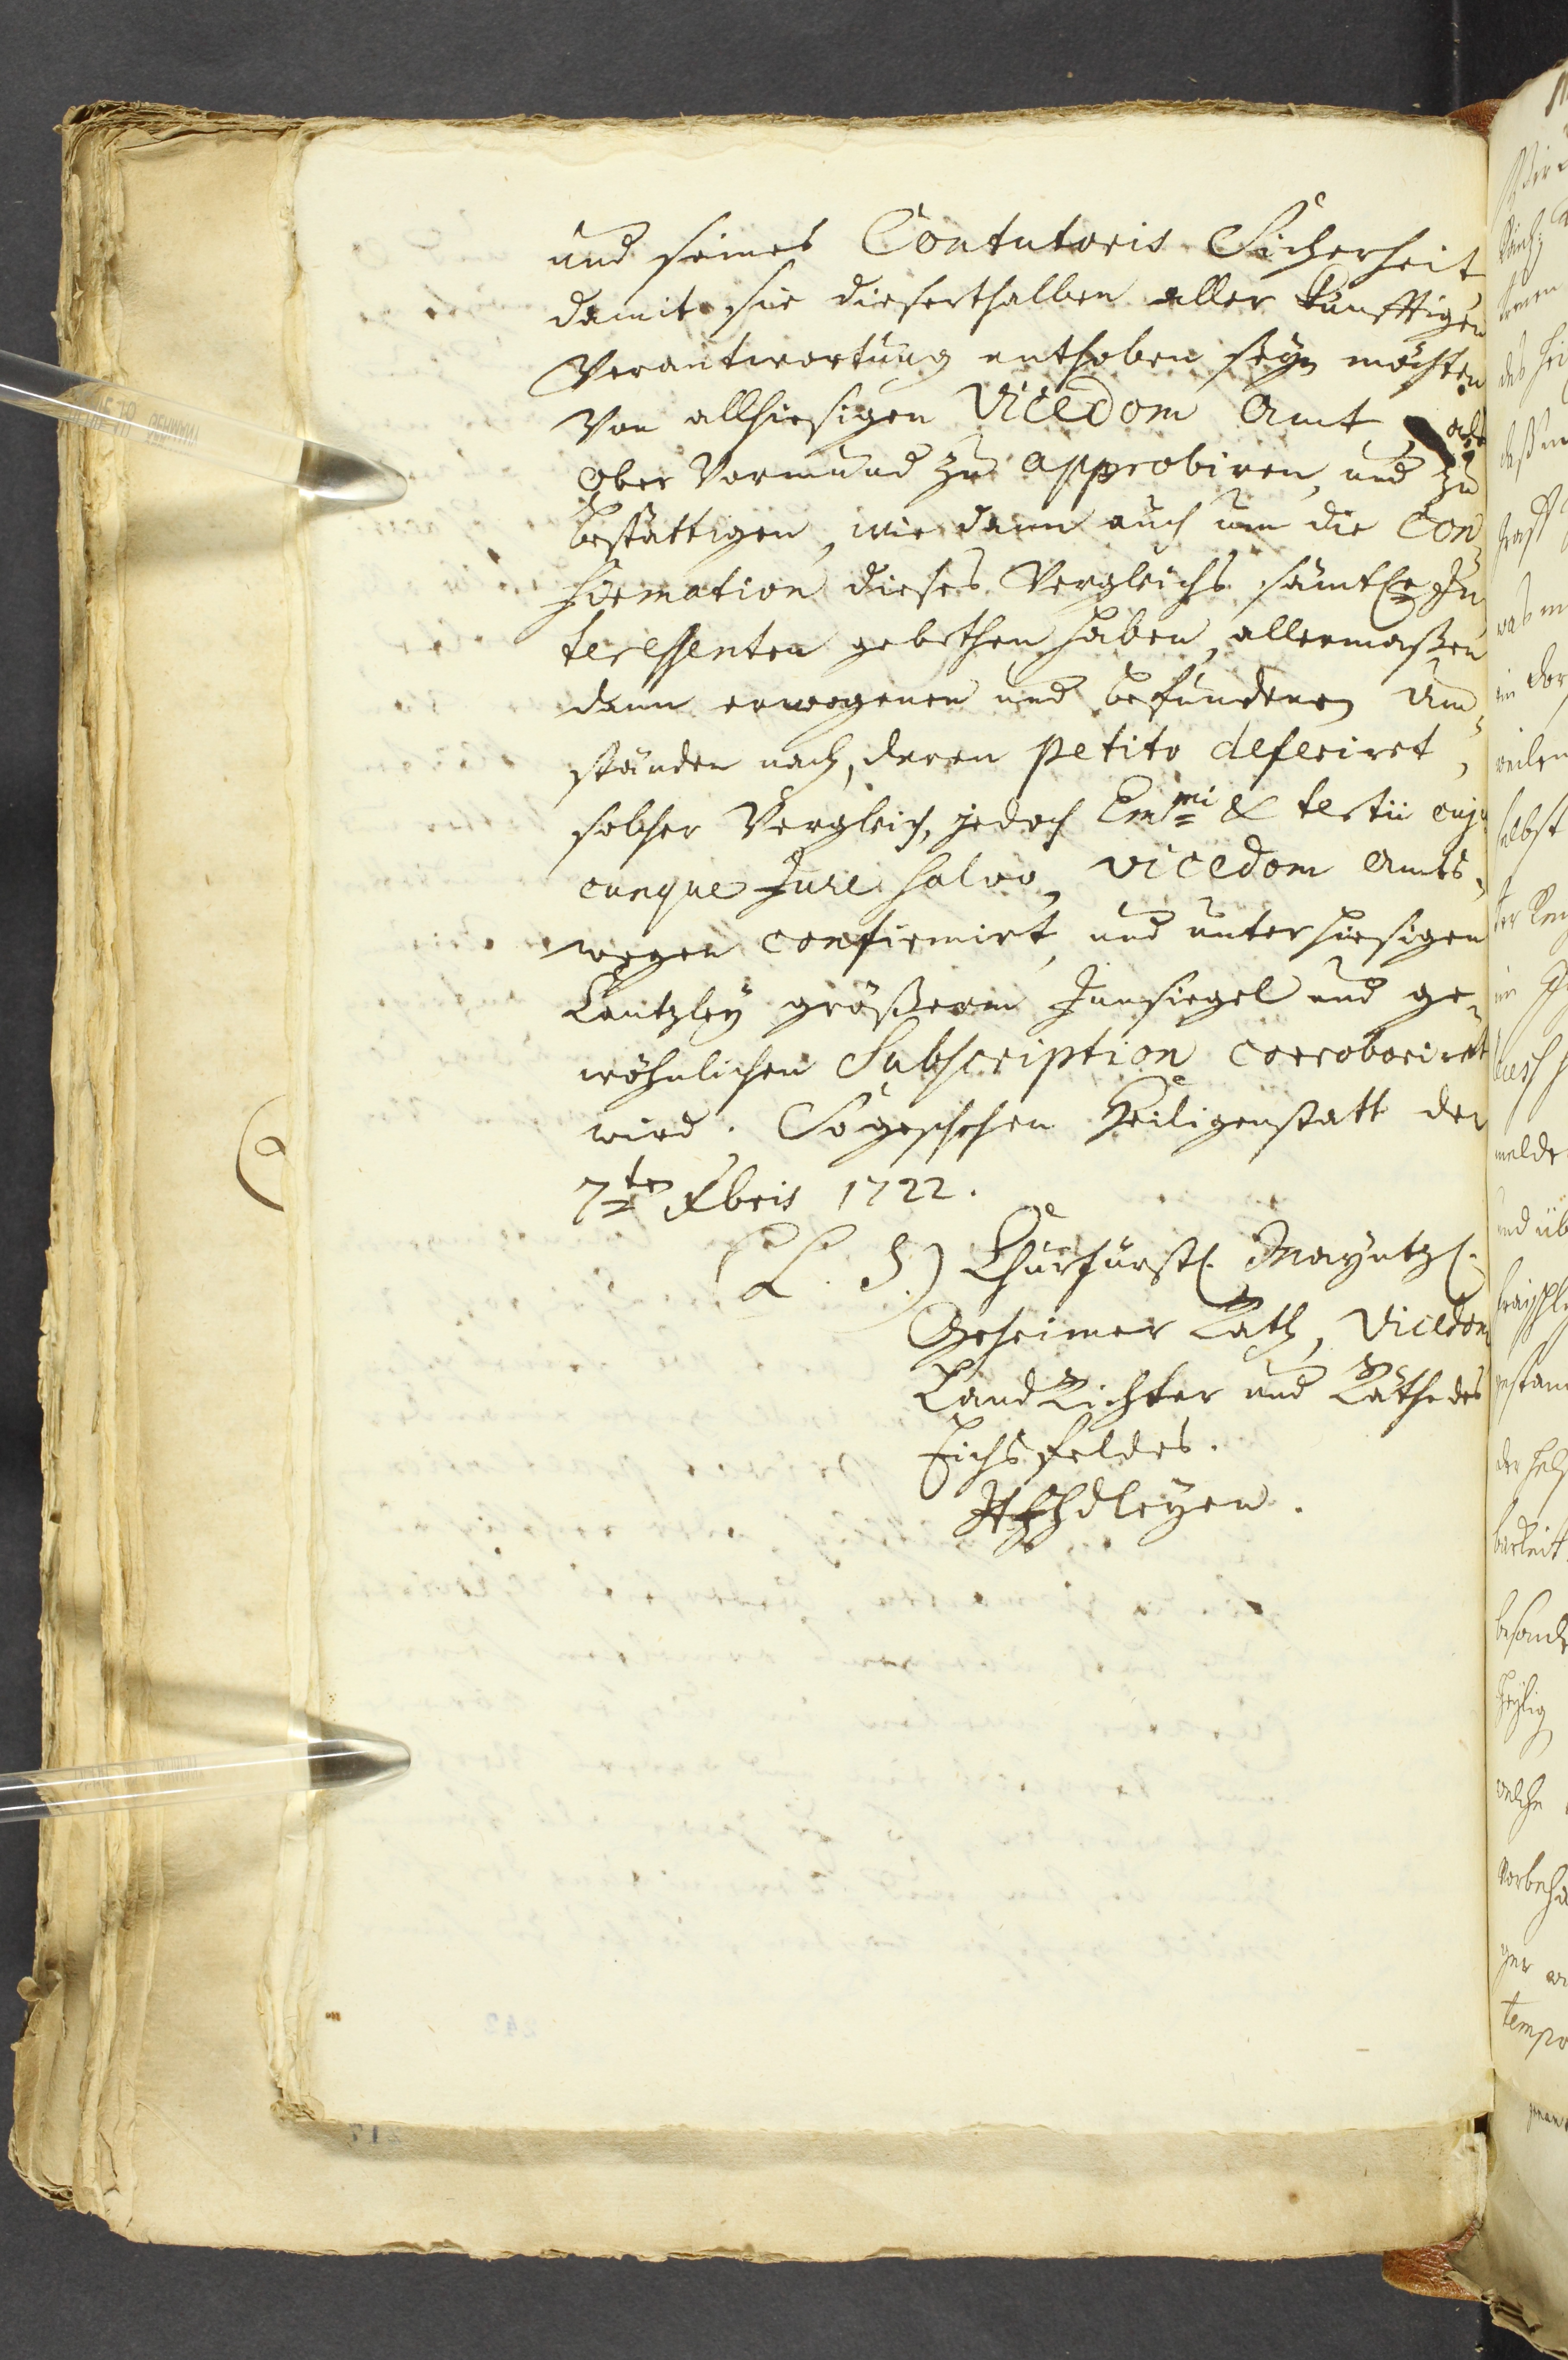 und seines Contutoris Sicherheit
damit sie dieserthalben aller künfftigen
Verantwortung enthoben seyn möchten
von allhiesigen Vicedom Amt, als
ober Vormund zu approbiren, und zu
bestättigen, wie dann auch um die Con-
firmation dieses Vergleichs sämtl. In-
teressenten gebethen haben, allermaßen
dann erwogenen und befundenen Um-
ständen nach, deren petito deferiret,
solcher Vergleich, jedoch Emmi & tertii cuj-
cunque Jure salvo, Vicedom Amts-
wegen confirmirt, und unter hiesigen
Cantzley größerem Innsiegel und ge-
wöhnlichen Subscription corroboriret
wird. So geschehen Heiligenstatt den
7ten Xbris 1722.
(L. S.) Churfürstl. Mayntzl.
Geheimer Rath, Vicedom
Land Richter und Räthe des
Eichsfeldes.
dleyen.